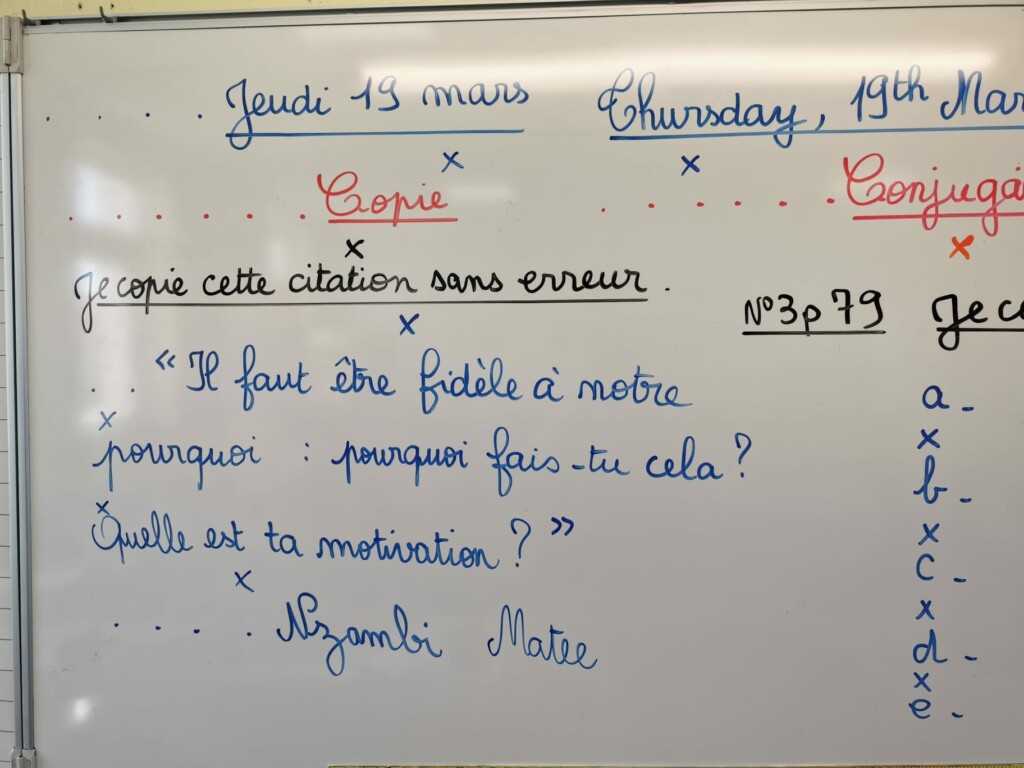 . . . . Jeudi 19 mars
x
. . . . . . Copie
x
Je copie cette citation sans erreur.
x
. . « Il faut être fidèle à notre
x
pourquoi : pourquoi fais-tu cela ?
x
Quelle est ta motivation ? »
x
. . . . Nzambi Matee
Thursday, 19th Mar
x
. . . . . . Conjuga
x
N°3 p 79 Je co
a -
x
b -
x
c -
x
d -
x
e -